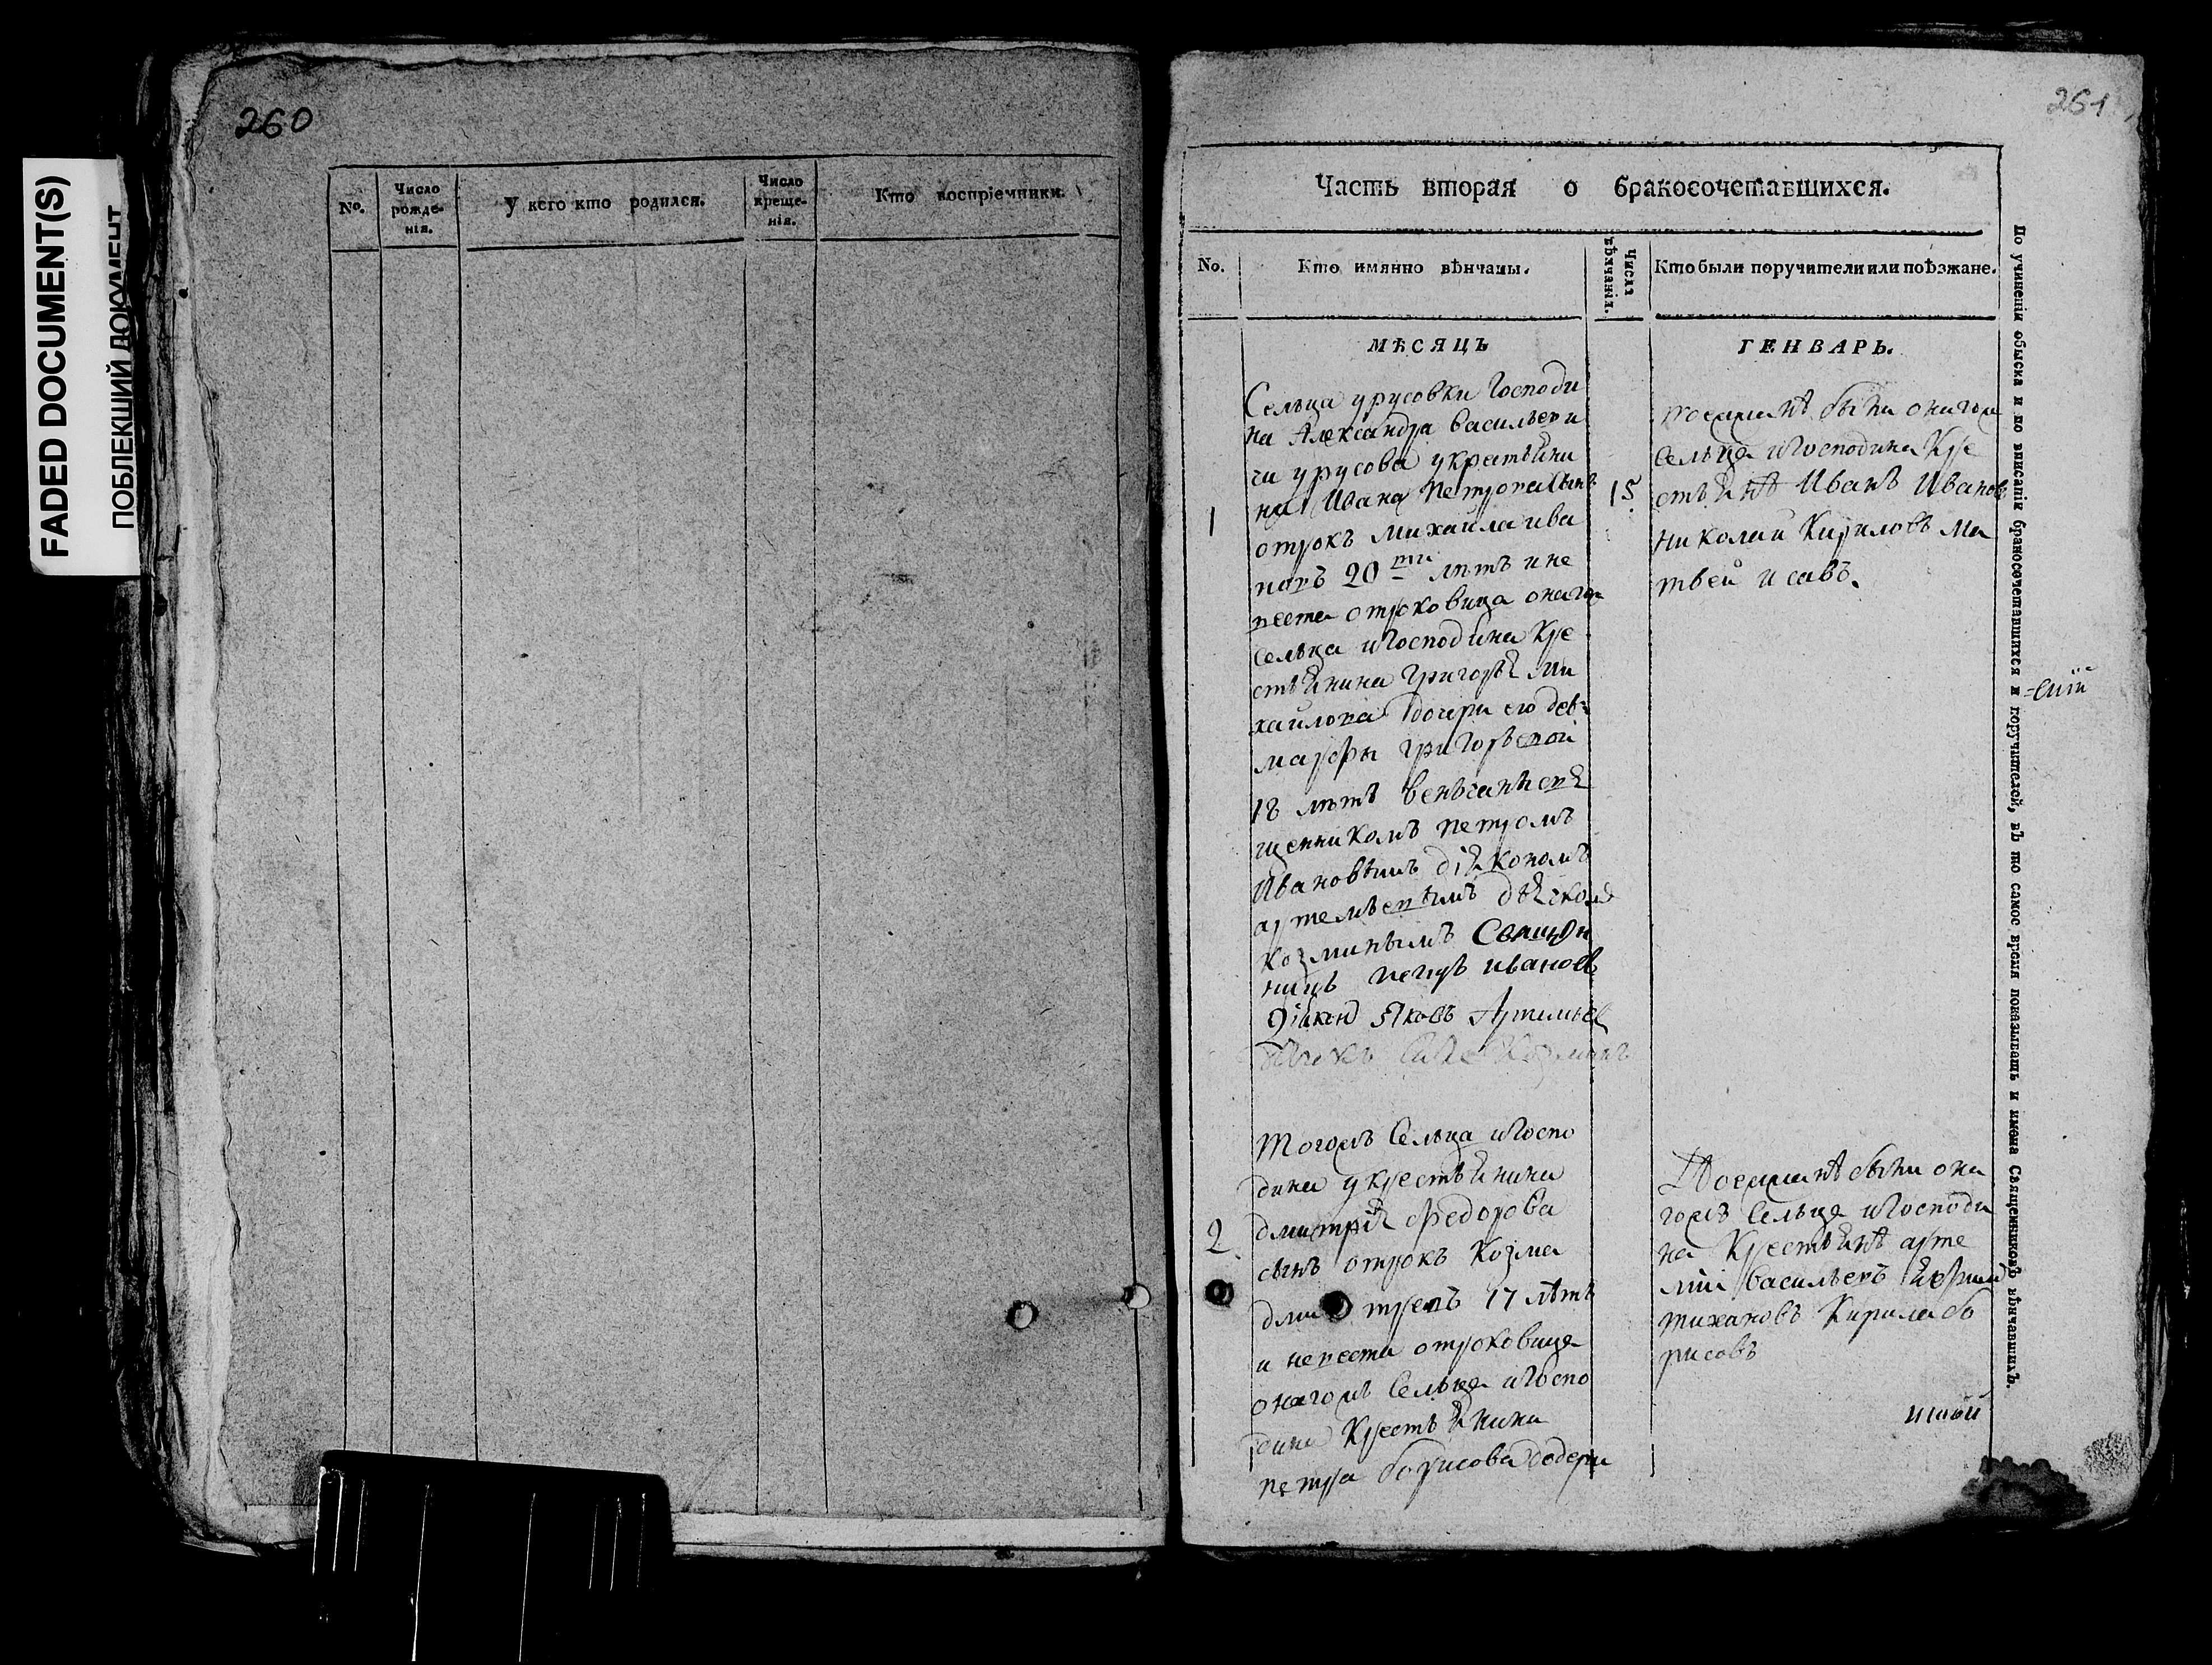 260
FADED DOCUMENT(S)
ПОБЛЕКШИЙ ДОКУМЕНТ
No.
Число рожде-нія.
У кого кто родился.
Число креще-нія.
Кто воспріемники.
261
Часть вторая о бракосочетавшихся.
No.
Кто имянно вѣнчаны.
Числа вѣнчанія.
Кто были поручители или поѣзжане.
МѢСЯЦЪ
ГЕНВАРЬ.
1
Сельца урусовки Господи
на Александра васильеви
чи урусова
на Ивана Петрова сынъ
отрокъ михаила ива
новъ 20 ти лѣтъ и не
веста отроковица онагож
сельца и Господина Кре
стьянина Григорья Ми
хайлова дочери его дев
марфы григорьевой
18 лѣтъ венчаны свя
щенникомъ петромъ
Ивановымъ діякономъ
артемьевымъ дьячкомъ
козминымъ Священ
никъ петръ ивановъ
Діаконъ Яковъ Артемьев
15
поезжанѣ были онагож
сельца и Господина Кре
стьянѣ Иванъ Ивановъ
николаи Кириловъ Ма
твеи исавъ.
2
Тогожъ Сельца и Госпо
дина у крестьянина
дмитрія Федорова
сынъ отрокъ Козма
дми треевъ 17 лѣтъ
и невеста отроковица
онагожъ Сельца и Госпо
дина Крестьянина
петра борисова дочери
Поезжанѣ были она
гожъ Сельца и Господи
на Крестьянѣ арте
міи васильевъ
тихановъ Кирила бо
рисовъ
По учиненіи обыска и по вписаніи бракосочетавшихся и поручителей, въ то самое время показывать и имена Священниковъ вѣнчавшихъ.